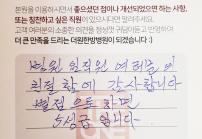 본원에서 지내시면서 좋으셨던 점이나 개선되었으면 하는 사항,
또는 칭찬하고 싶은 직원이 있으시다면 말씀해주세요.
고객 여러분의 소중한 의견을 정성껏 귀담아듣고 반영하여
더 큰 만족을 드리는 더원한방병원이 되겠습니다 :)
병원 임직원 여러분의
친절함에 감사합니다
별점으로 하면
5성급 입니다